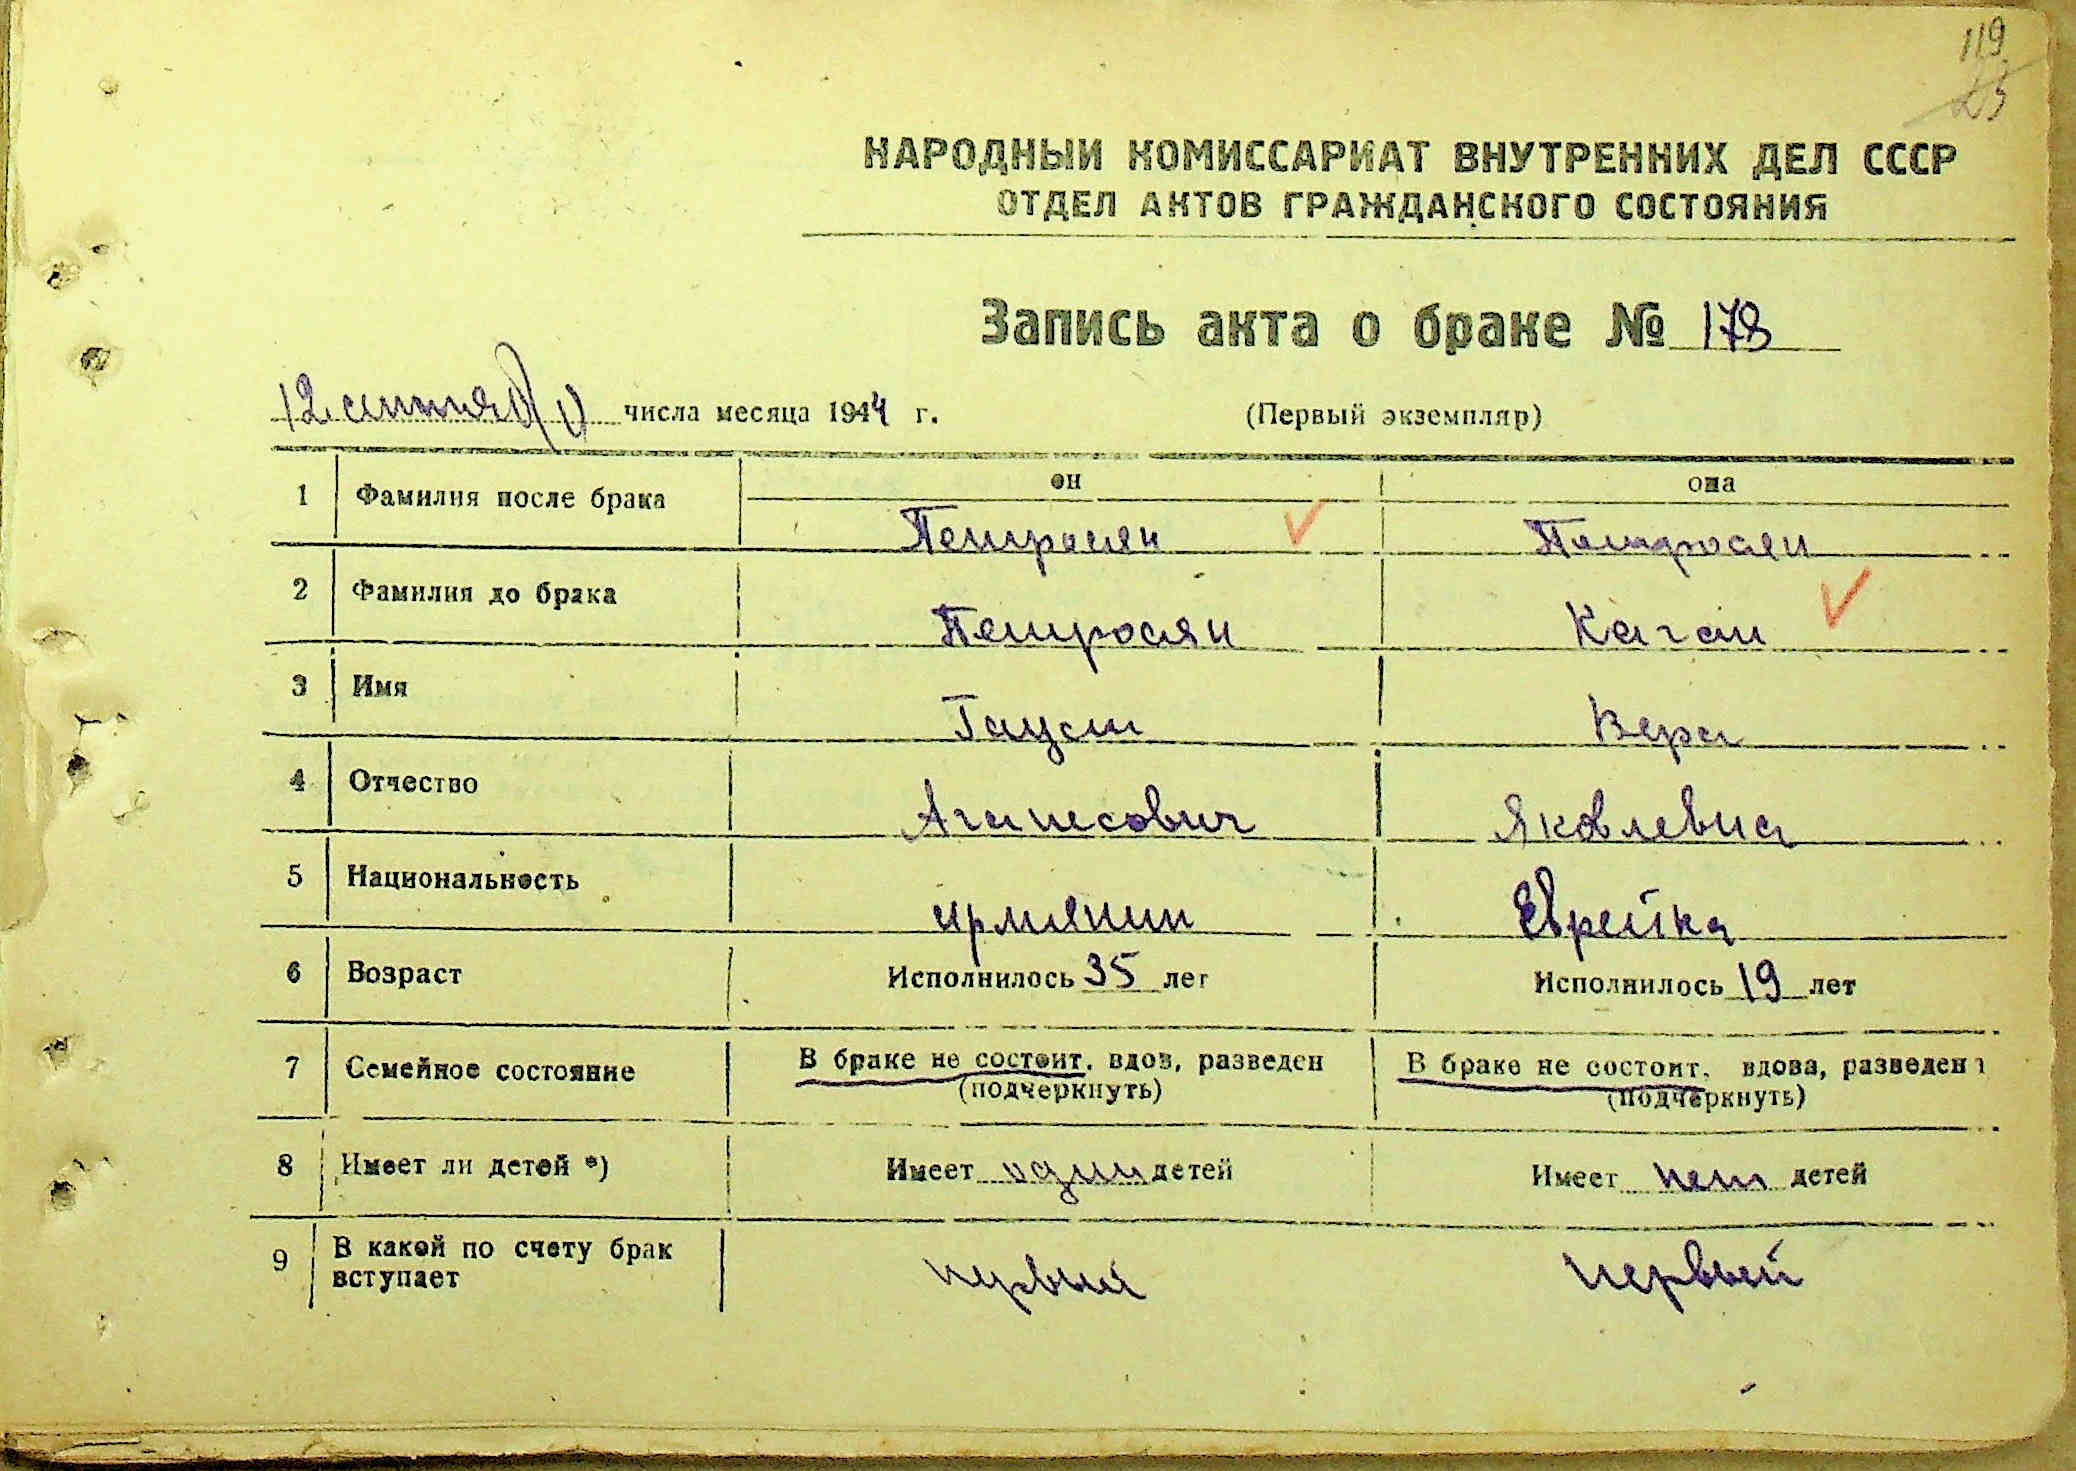 119
23
НАРОДНЫЙ КОМИССАРИАТ ВНУТРЕННИХ ДЕЛ СССР
ОТДЕЛ АКТОВ ГРАЖДАНСКОГО СОСТОЯНИЯ
Запись акта о браке № 178
12 сентября числа месяца 1944 г. (Первый экземпляр)
он она
1 Фамилия после брака Петросян Петросян
2 Фамилия до брака Петросян Каган
3 Имя Вера
4 Отчество Яковлевна
5 Национальность армянин Еврейка
6 Возраст Исполнилось 35 лет Исполнилось 19 лет
7 Семейное состояние В браке не состоит, вдов, разведен В браке не состоит, вдова, разведена
(подчеркнуть) (подчеркнуть)
8 Имеет ли детей *) Имеет один детей Имеет нет детей
9 В какой по счету брак
вступает первый первый